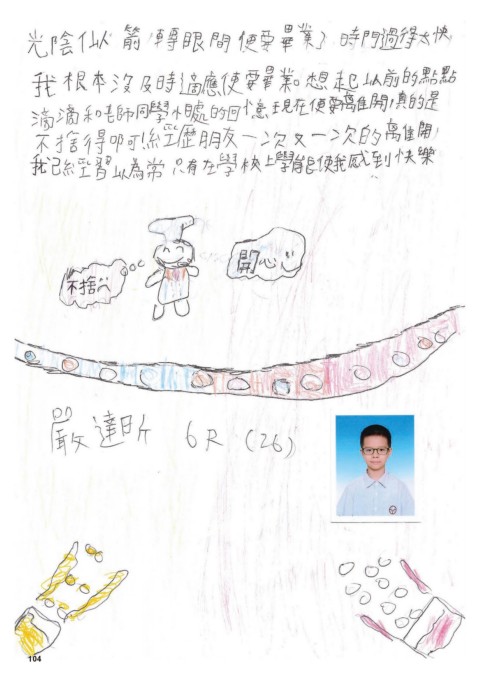 光陰似箭,轉眼間便要畢業了,時間過得太快
我根本沒及時適應便要畢業。想起以前的點點
滴滴和老師同學小處的回憶,現在便要離開,真的是
不捨得呀!經歷朋友一次又一次的離開,
我已經習以為常,只有在學校上學能使我感到快樂
不捨
開心
嚴達昕 6R (26)
104